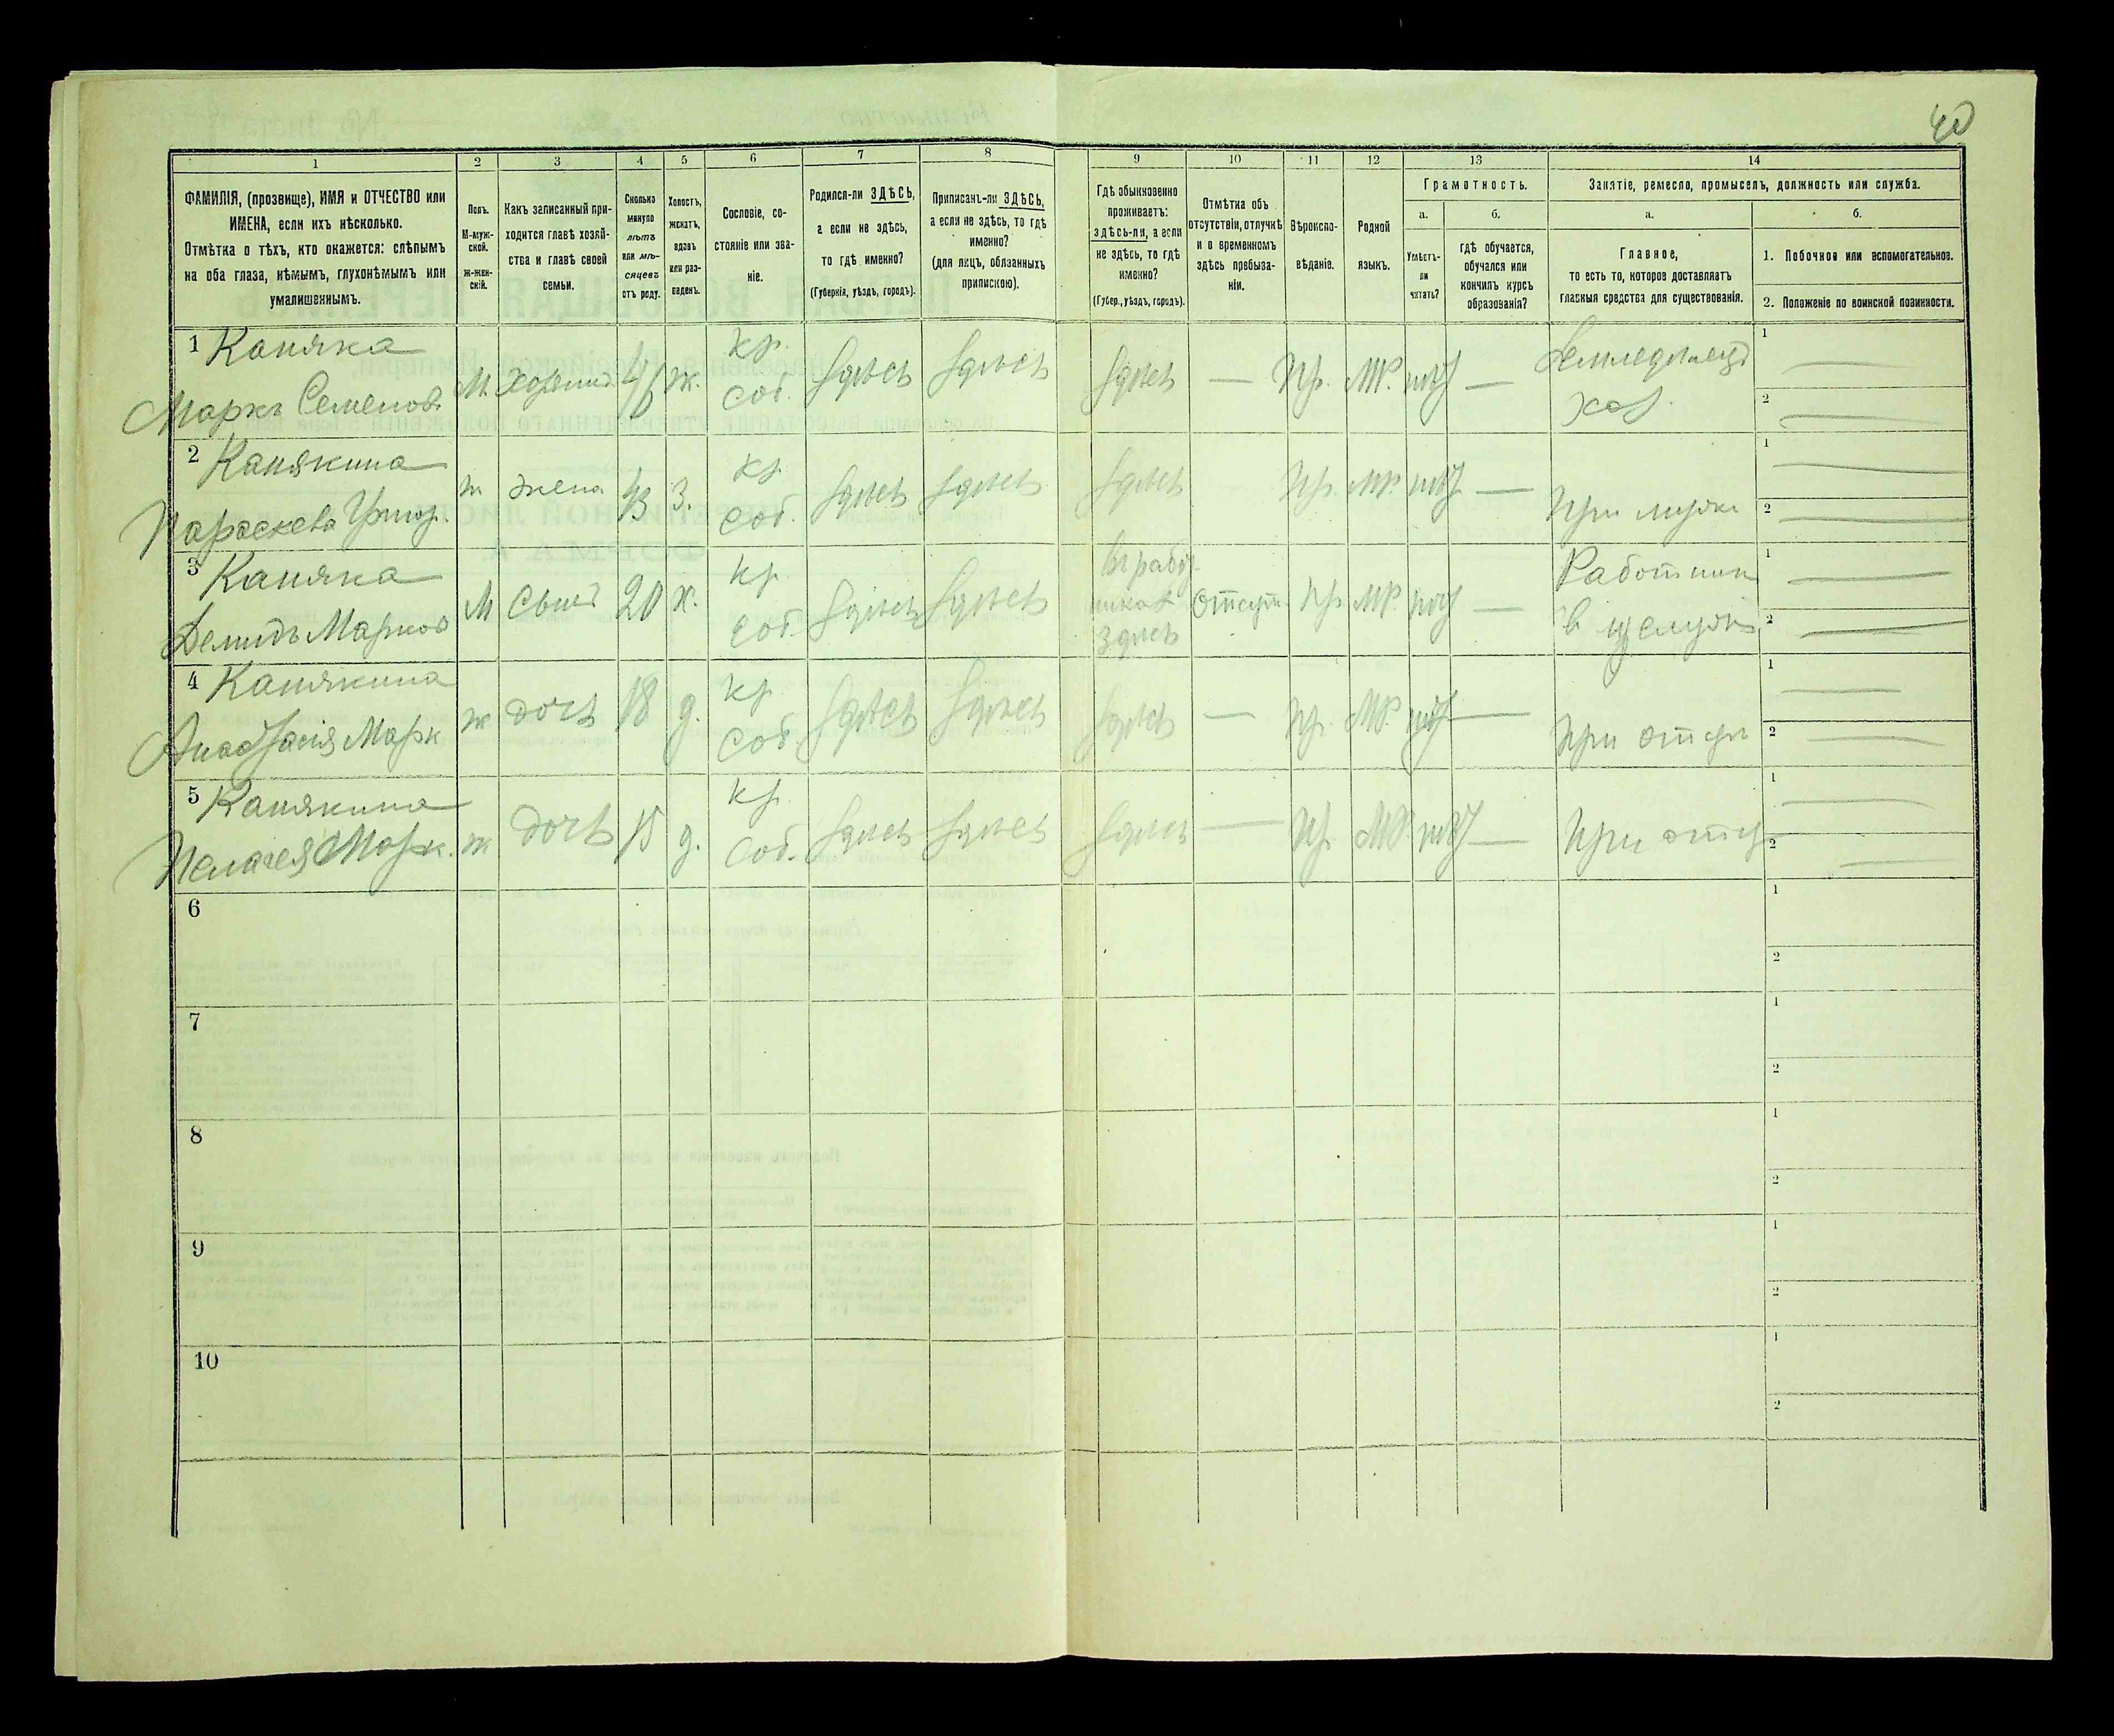 40
1 2 3 4 5 6 7 8 9 10 11 12 13 14
ФАМИЛІЯ, (прозвище), ИМЯ и ОТЧЕСТВО или
ИМЕНА, если ихъ нѣсколько.
Отмѣтка о тѣхъ, кто окажется: слѣпымъ
на оба глаза, нѣмымъ, глухонѣмымъ или
умалишеннымъ.
Полъ.
М-муж-
ской.
ж-жен-
скій.
Какъ записанный при-
ходится главѣ хозяй-
ства и главѣ своей
семьи.
Сколько
минуло
лѣтъ
или мѣ-
сяцевъ
отъ роду.
Холостъ,
женатъ,
вдовъ
или раз-
веденъ.
Сословіе, со-
стояніе или зва-
ніе.
Родился-ли ЗДѢСЬ,
а если не здѣсь,
то гдѣ именно?
(Губернія, уѣздъ, городъ).
Приписанъ-ли ЗДѢСЬ,
а если не здѣсь, то гдѣ
именно?
(для лицъ, обязанныхъ
припискою).
Гдѣ обыкновенно
проживаетъ:
здѣсь-ли, а если
не здѣсь, то гдѣ
именно?
(Губер., уѣздъ, городъ).
Отмѣтка объ
отсутствіи, отлучкѣ
и о временномъ
здѣсь пребыва-
ніи.
Вѣроиспо-
вѣданіе.
Родной
языкъ.
Грамотность.
а.
Умѣетъ-
ли
читать?
б.
гдѣ обучается,
обучался или
кончилъ курсъ
образованія?
Занятіе, ремесло, промыселъ, должность или служба.
а.
Главное,
то есть то, которое доставляетъ
главныя средства для существованія.
б.
1. Побочное или вспомогательное.
2. Положеніе по воинской повинности.
1 Каняка
Маркъ Семенов. М. Хозяинъ 45 ж. кр. соб. здѣсь здѣсь здѣсь — Пр. МР. нѣт — Земледѣлецъ
хоз.
1
2
2 Канякина
Параскева Григор. ж жена 43 з. кр. соб. здѣсь здѣсь здѣсь Пр. МР. нѣт — При мужѣ
1
2
3 Каняка
Демидъ Марков М Сынъ 20 х. кр. соб. здѣсь здѣсь
здѣсь Отсут. Пр. МР. нѣт — Работник
в
1
2
4 Канякина
Анастасія Марк ж дочь 18 д. кр. соб. здѣсь здѣсь здѣсь — Пр. МР. нѣт — При отцѣ
1
2
5 Канякина
Пелагея Марк. ж дочь 15 д. кр. соб. здѣсь здѣсь здѣсь — Пр. МР. нѣт — При отцѣ
1
2
6
1
2
7
1
2
8
1
2
9
1
2
10
1
2